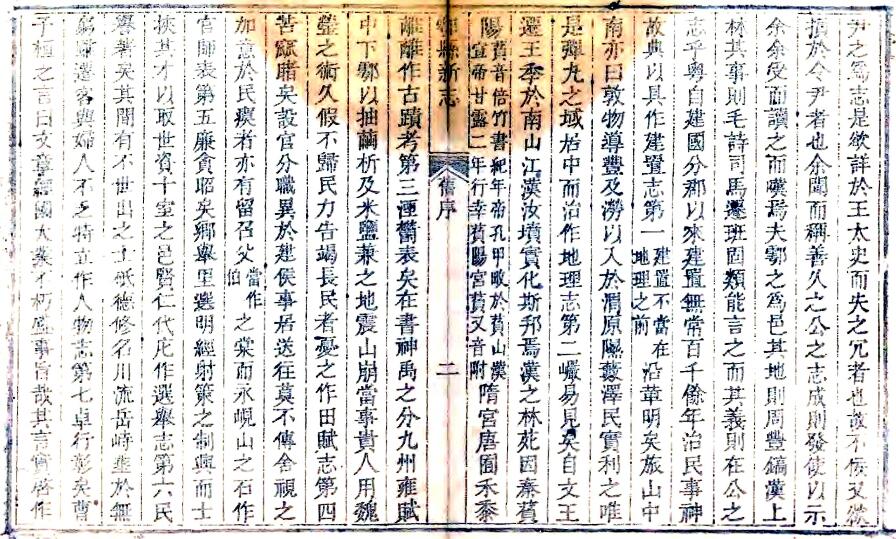 尹之爲志是欲詳於王太史而失之冗者也故不佞又欲
損於令尹者也余聞而稱善久之公之志成則發使以示
余余受而讀之而嘆焉夫鄠之爲邑其地則周豐鎬漢上
林其事則毛詩司馬遷班固類能言之而其義則在公之
志乎粤自建國分郡以來建置無常百千餘年治民事神
故典以具作建置志第一建置不當在地理之前沿革明矣旅山中
南亦曰敦物導豐及澇以入於渭原隰藪澤民實利之唯
是彈丸之域居中而治作地理志第二巇易見矣自文王
遷王季於南山江漢汝墳實化斯邦焉漢之林苑因秦萯
陽萯音倍竹書紀年帝孔甲畋於萯山漢宣帝甘露二年行幸萯陽宮萯又音附隋宮唐囿禾黍
鄠縣新志 舊序 二
離離作古蹟考第三湮鬱表矣在書神禹之分九州雍賦
中下鄠以抽繭析及米鹽兼之地震山崩當事貴人用魏
瑩之術久假不歸民力告竭長民者憂之作田賦志第四
苦窳睹矣設官分職異於建侯事居送往莫不傳舍視之
加意於民瘼者亦有留召父當作伯之棠而永峴山之石作
官師表第五廉貪昭矣鄉舉里選明經射策之制興而士
挾其才以取世資十室之邑賢仁代庀作選舉志第六民
譽著矣其間有不世出之士砥德修名川流岳峙並於無
窮遷客與婦人不乏特立作人物志第七卓行彰矣曹
子桓之言曰文章經國大業不朽盛事旨哉其言實啓作